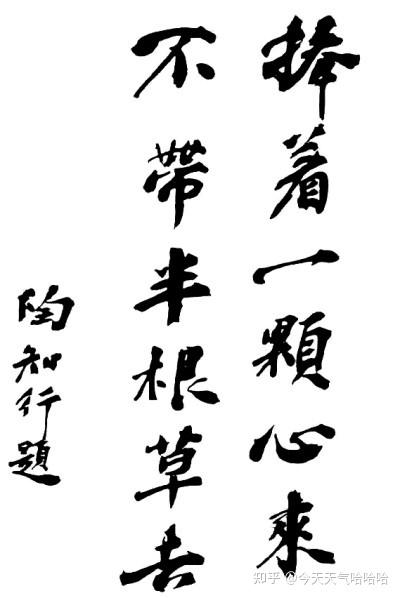 捧着一顆心來
不帶半根草去
陶知行題
知乎 @今天天气哈哈哈